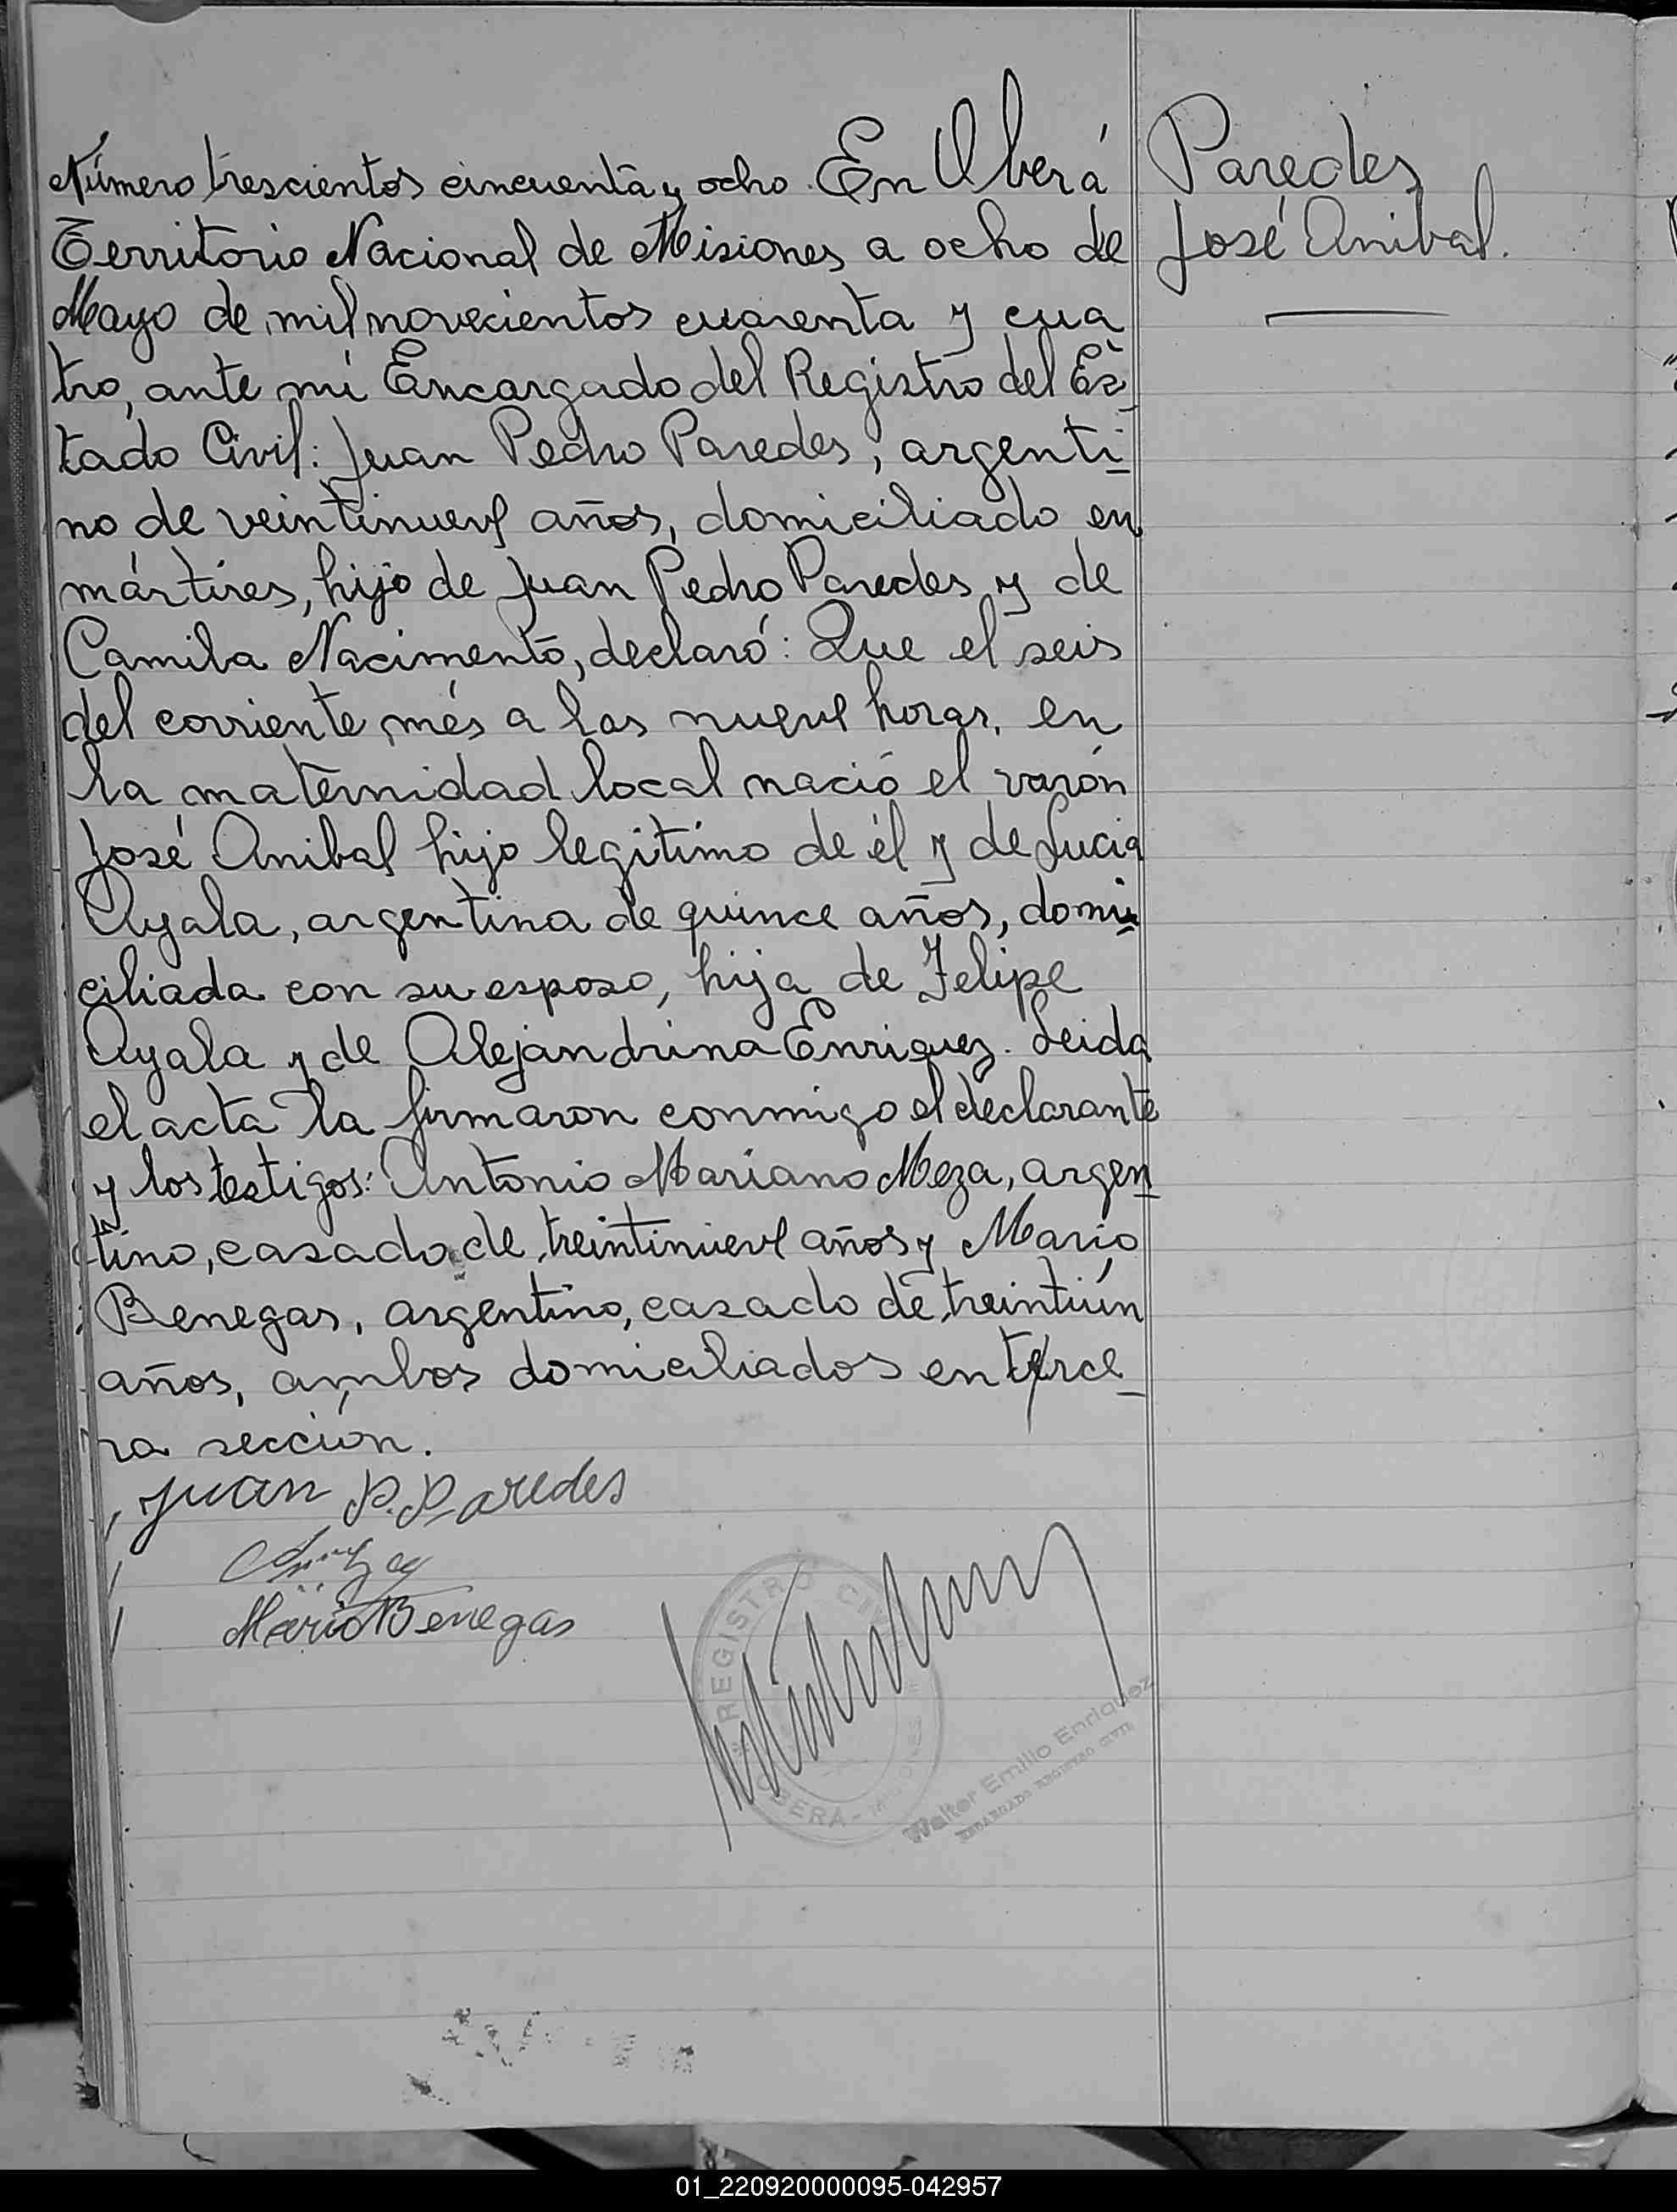 Número trescientos cincuenta y ocho. En Oberá
Territorio Nacional de Misiones a ocho de
Mayo de mil novecientos cuarenta y cua
tro, ante mí Encargado del Registro del Es-
tado Civil: Juan Pedro Paredes, argenti-
no de veintinueve años, domiciliado en
mártires, hijo de Juan Pedro Paredes y de
Camila Nacimento, declaró: Que el seis
del corriente més a las nueve horas, en
la maternidad local nació el varón
José Anibal hijo legítimo de él y de Lucia
Ayala, argentina de quince años, domi-
ciliada con su esposo, hija de Felipe
Ayala y de Alejandrina Enriquez. Leida
el acta la firmaron conmigo el declarante
y los testigos: Antonio Mariano Meza, argen-
tino, casado de treintinueve años y Mario
Benegas, argentino, casado de treintiún
años, ambos domiciliados en terce-
ra sección.
Juan P. Paredes
Mario Benegas
REGISTRO CIVIL
OBERA - MISIONES
Walter Emilio Enriquez
ENCARGADO REGISTRO CIVIL
Paredes
José Anibal.
01_220920000095-042957